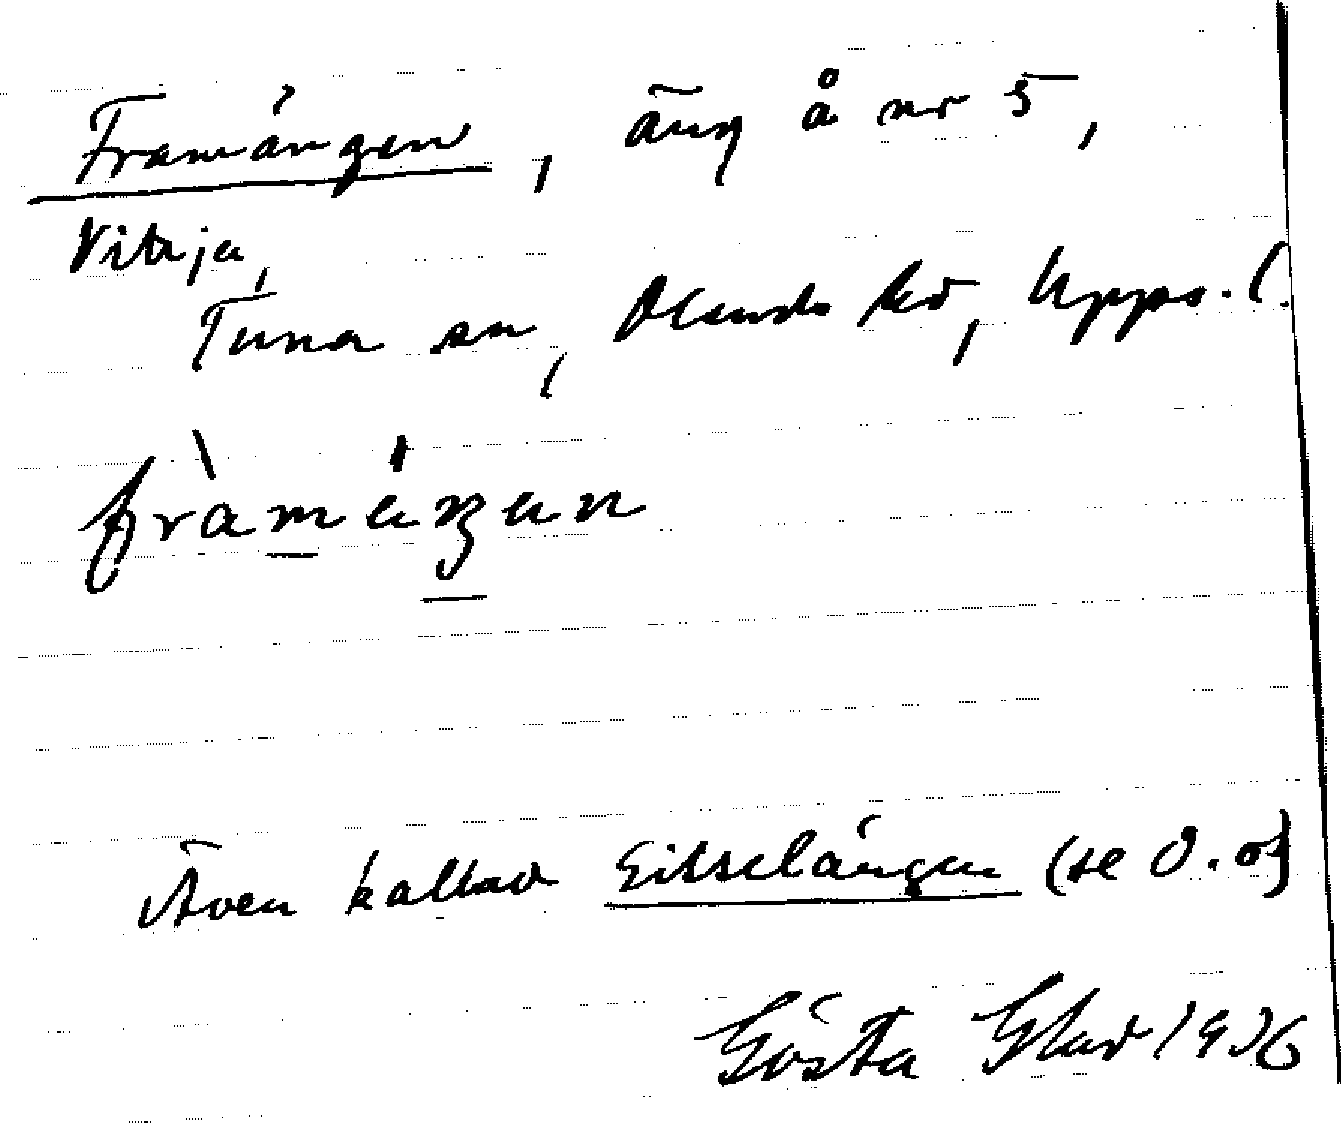 Framängen, äng å nr 5,
Vibrja,
Tuna sn, Olands hd, Upps. l.
fràmáŋan
Även kallad Gitselängen (se d. o)
Gösta Glad 1936